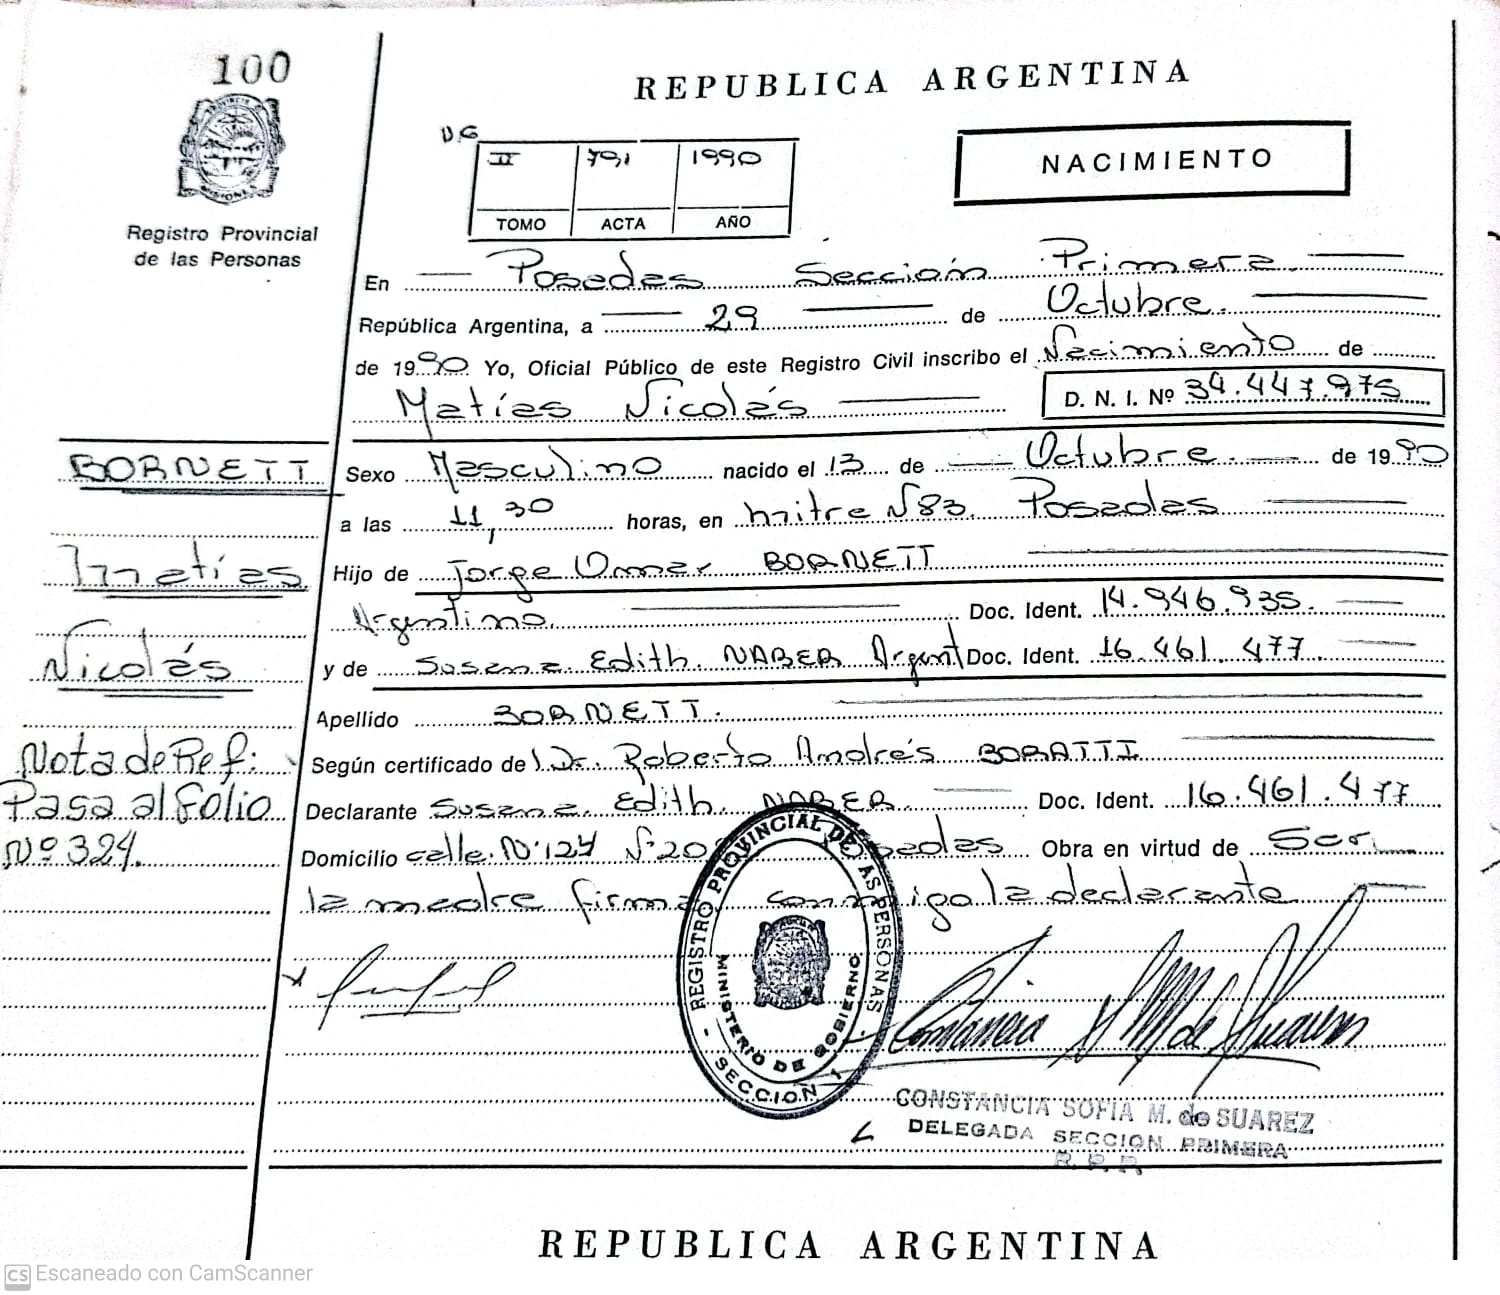 100
REPUBLICA ARGENTINA
D.G
II 791 1990
TOMO ACTA AÑO
NACIMIENTO
Registro Provincial
de las Personas
En Posadas Sección Primera
República Argentina, a 29 de Octubre.
de 1990 Yo, Oficial Público de este Registro Civil inscribo el Nacimiento de
Matías Nicolás D. N. I. Nº 34.447.975
BORNETT
Sexo Masculino nacido el 13 de Octubre. de 1990
a las 11,30 horas, en mitre N83. Posadas
Matías
Hijo de Jorge Omar BORNETT
Argentino. Doc. Ident. 14.946.935.
Nicolás
y de Susana Edith NABER Argent Doc. Ident. 16.461.477
Apellido BORNETT.
Nota de Ref:
Según certificado de Dr. Roberto Andrés BORATTI
Pasa al folio
Declarante Susana Edith NABER Doc. Ident. 16.461.477
Nº 324.
Domicilio calle Nº 124 Obra en virtud de Ser
la madre firma conmigo la declarante
REGISTRO PROVINCIAL DE LAS PERSONAS
MINISTERIO DE GOBIERNO
SECCION 1
Constancia S M de Suarez
CONSTANCIA SOFIA M. de SUAREZ
DELEGADA SECCION PRIMERA
R. P. P.
REPUBLICA ARGENTINA
CS Escaneado con CamScanner